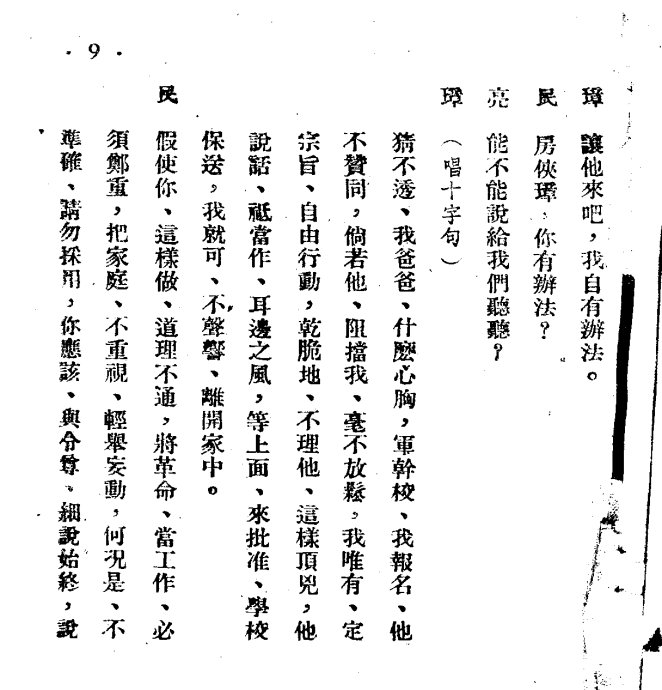 璋　讓他來吧，我自有辦法。
民　房俠璋，你有辦法？
亮　能不能說給我們聽聽？
璋　（唱十字句）
猜不透、我爸爸、什麼心胸，軍幹校、我報名、他
不贊同，倘若他、阻擋我、毫不放鬆，我唯有、定
宗旨、自由行動，乾脆地、不理他、這樣頂兇，他
說話、祗當作、耳邊之風，等上面、來批准、學校
保送，我就可、不聲響、離開家中。
民　假使你、這樣做、道理不通，將革命、當工作、必
須鄭重，把家庭、不重視、輕舉妄動，何況是、不
準確、請勿採用，你應該、與令尊、細說始終，說
· 9 ·